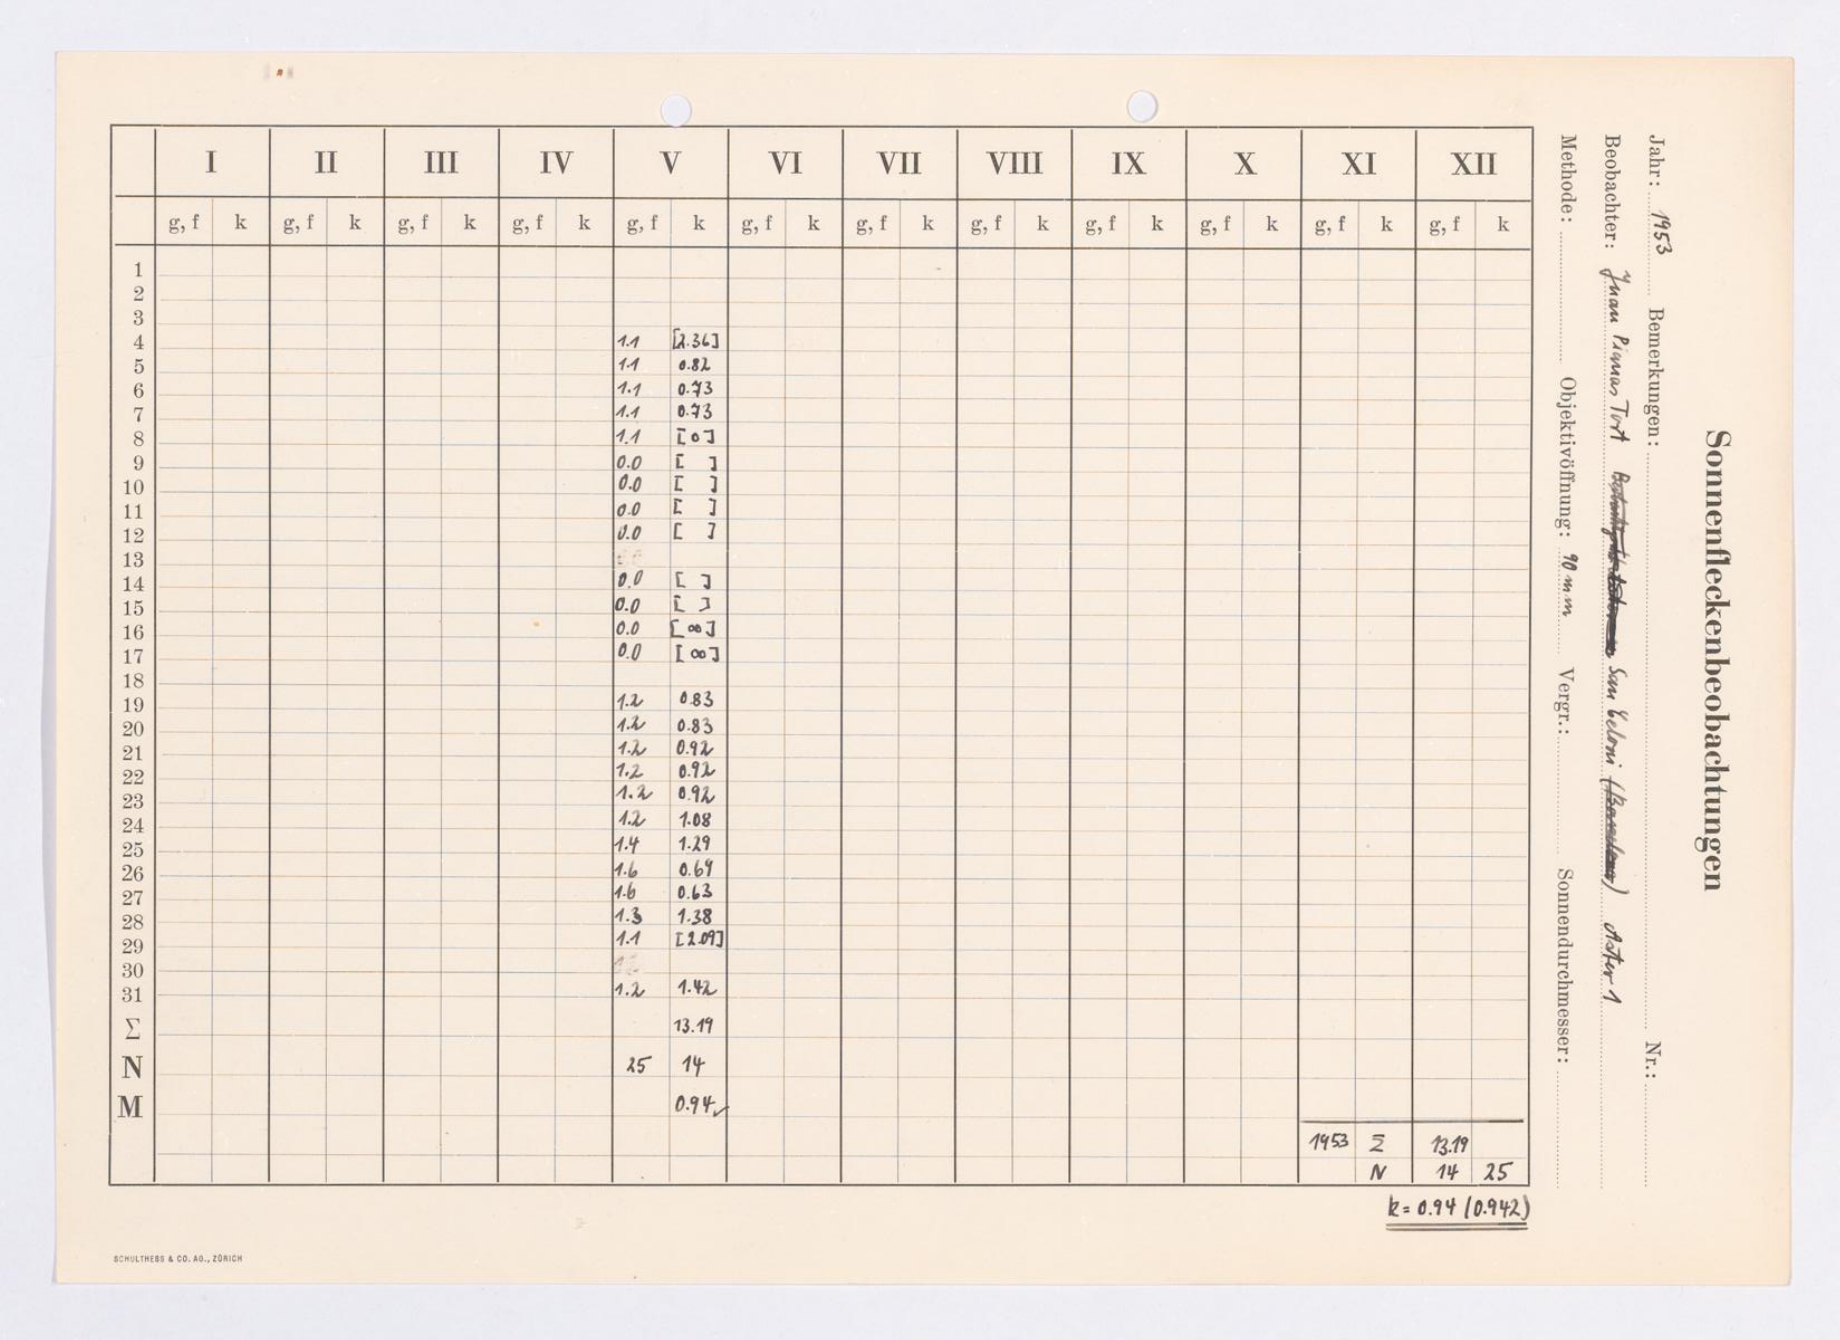 Sonnenfleckenbeobachtungen
Jahr: 1953 Bemerkungen: Nr.:
Beobachter: Juan Pismas Tort San Celoni Aster 1
Methode: Objektivöffnung: 90 mm Vergr.: Sonnendurchmesser:
I II III IV V VI VII VIII IX X XI XII
g, f k g, f k g, f k g, f k g, f k g, f k g, f k g, f k g, f k g, f k g, f k g, f k
1
2
3
4 1.1 [2.36]
5 1.1 0.82
6 1.1 0.73
7 1.1 0.73
8 1.1 [0]
9 0.0 [ ]
10 0.0 [ ]
11 0.0 [ ]
12 0.0 [ ]
13
14 0.0 [ ]
15 0.0 [ ]
16 0.0 [∞]
17 0.0 [∞]
18
19 1.2 0.83
20 1.2 0.83
21 1.2 0.92
22 1.2 0.92
23 1.2 0.92
24 1.2 1.08
25 1.4 1.29
26 1.6 0.69
27 1.6 0.63
28 1.3 1.38
29 1.1 [2.09]
30
31 1.2 1.42
Σ 13.19
N 25 14
M 0.94✓
1953 Σ 13.19
N 14 25
k = 0.94 (0.942)
SCHULTHESS & CO. AG., ZÜRICH